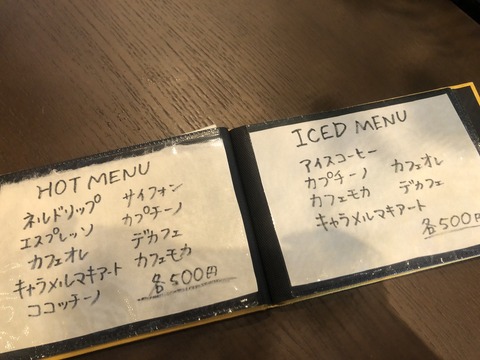 HOT MENU
ネルドリップ サイフォン
エスプレッソ カプチーノ
カフェオレ デカフェ
キャラメルマキアート カフェモカ
ココッチーノ 各500円
ICED MENU
アイスコーヒー
カプチーノ カフェオレ
カフェモカ デカフェ
キャラメルマキアート
各500円